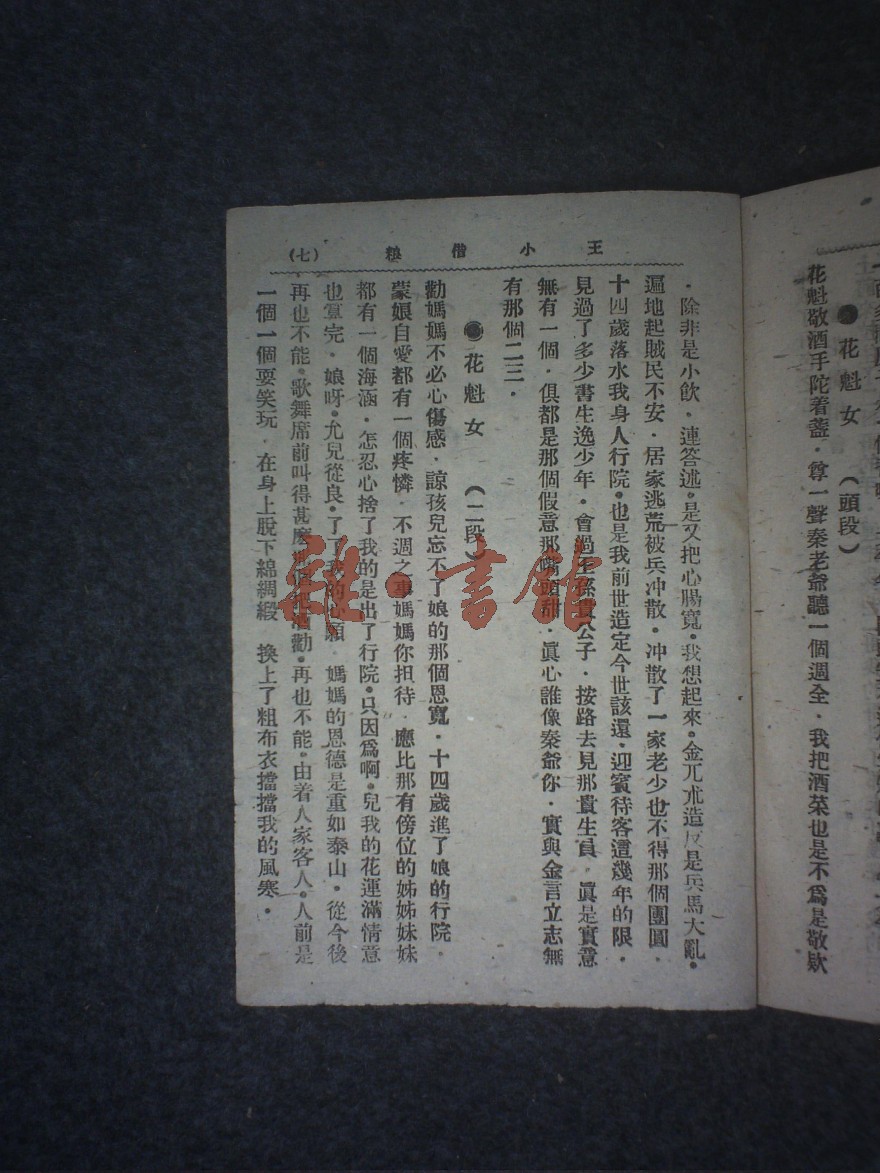 ●花魁女　（頭段）
花魁敬酒手陀着盞．尊一聲秦老爺聽一個週全．我把酒菜也是不爲是敬欵
王小借粮
（七）
．除非是小飲．連答述。是又把心腸寬。我想起來。金兀朮造反是兵馬大亂。
遍地起賊民不安．居家逃荒被兵冲散．冲散了一家老少也不得那個團圓．
十四歲落水我身人行院。也是我前世造定今世該還．迎賓待客這幾年的限．
見過了多少書生逸少年．會過王孫貴公子．按路去見那貴生員．眞是實意
無有一個．俱都是那個假意那嘴頭甜．眞心誰像秦爺你．實與金言立志無
有那個二三．
●花魁女　（二段）
勸媽媽不必心傷感．諒孩兒忘不了娘的那個恩寬．十四歲進了娘的行院．
蒙娘自愛都有一個疼憐．不週之事媽媽你担待．應比那有傍位的姊姊妹妹
都有一個海涵．怎忍心捨了我的是出了行院。只因爲啊。兒我的花運滿情意
也算完．娘呀。尤兒從良。了了我的心願．媽媽的恩德是重如泰山．從今後
再也不能。歌舞席前叫得甚麽把酒勸。再也不能。由着人家客人。人前是
一個一個耍笑玩．在身上脫下綿綢緞　換上了粗布衣擋擋我的風寒．
雜·書館